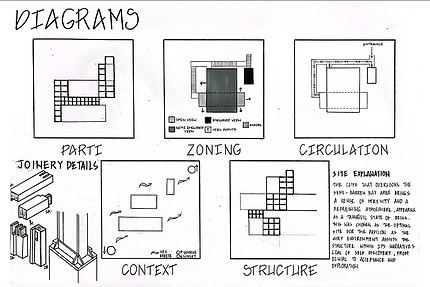 DIAGRAMS
ENTRANCE
OPEN VIEW
ENCLOSED VIEW
SEMI ENCLOSED VIEW
VIEW POINTS
PARTI
ZONING
CIRCULATION
JOINERY DETAILS
CONTEXT
STRUCTURE
SITE EXPLANATION
THE CLIFF THAT OVERLOOKS THE
SEMI-BARREN BAY AREA BRINGS
A SENSE OF SERENITY AND A
REFRESHING ATMOSPHERE, APPEARING
AS A TRANQUIL STATE OF BEING.
THIS WAS CHOSEN AS THE
SITE FOR THE PAVILION AS THE
ENVIRONMENT ASSISTS THE
STRUCTURE WITH NARRATIVE
GOAL OF SELF DISCOVERY, FROM
DENIAL TO ACCEPTANCE AND
EXPLORATION